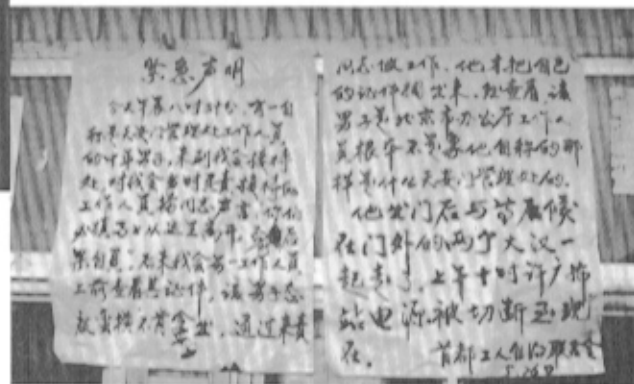 紧急声明
今天早晨八时30分,有一自
称是天安门管理处工作人员
的中年男子,来到我会接待
处,对我会当时负责接待的
工作人员杨同志声言,你们
必须马上从这里离开,否则后
果自负,后来我会另一工作人员
上前查看其证件,该男子态
度蛮横不肯拿出,通过来责
同志做工作,他才把自己
的证件拿出来,经查看,该
男子是北京市办公厅工作人
员根本不是象他自称的那
样是什么天安门管理处的。
他出门后与等候
在门外的两个大汉一
起走了,上午十时许广播
站电源被切断至现
在。
首都工人自治联合会